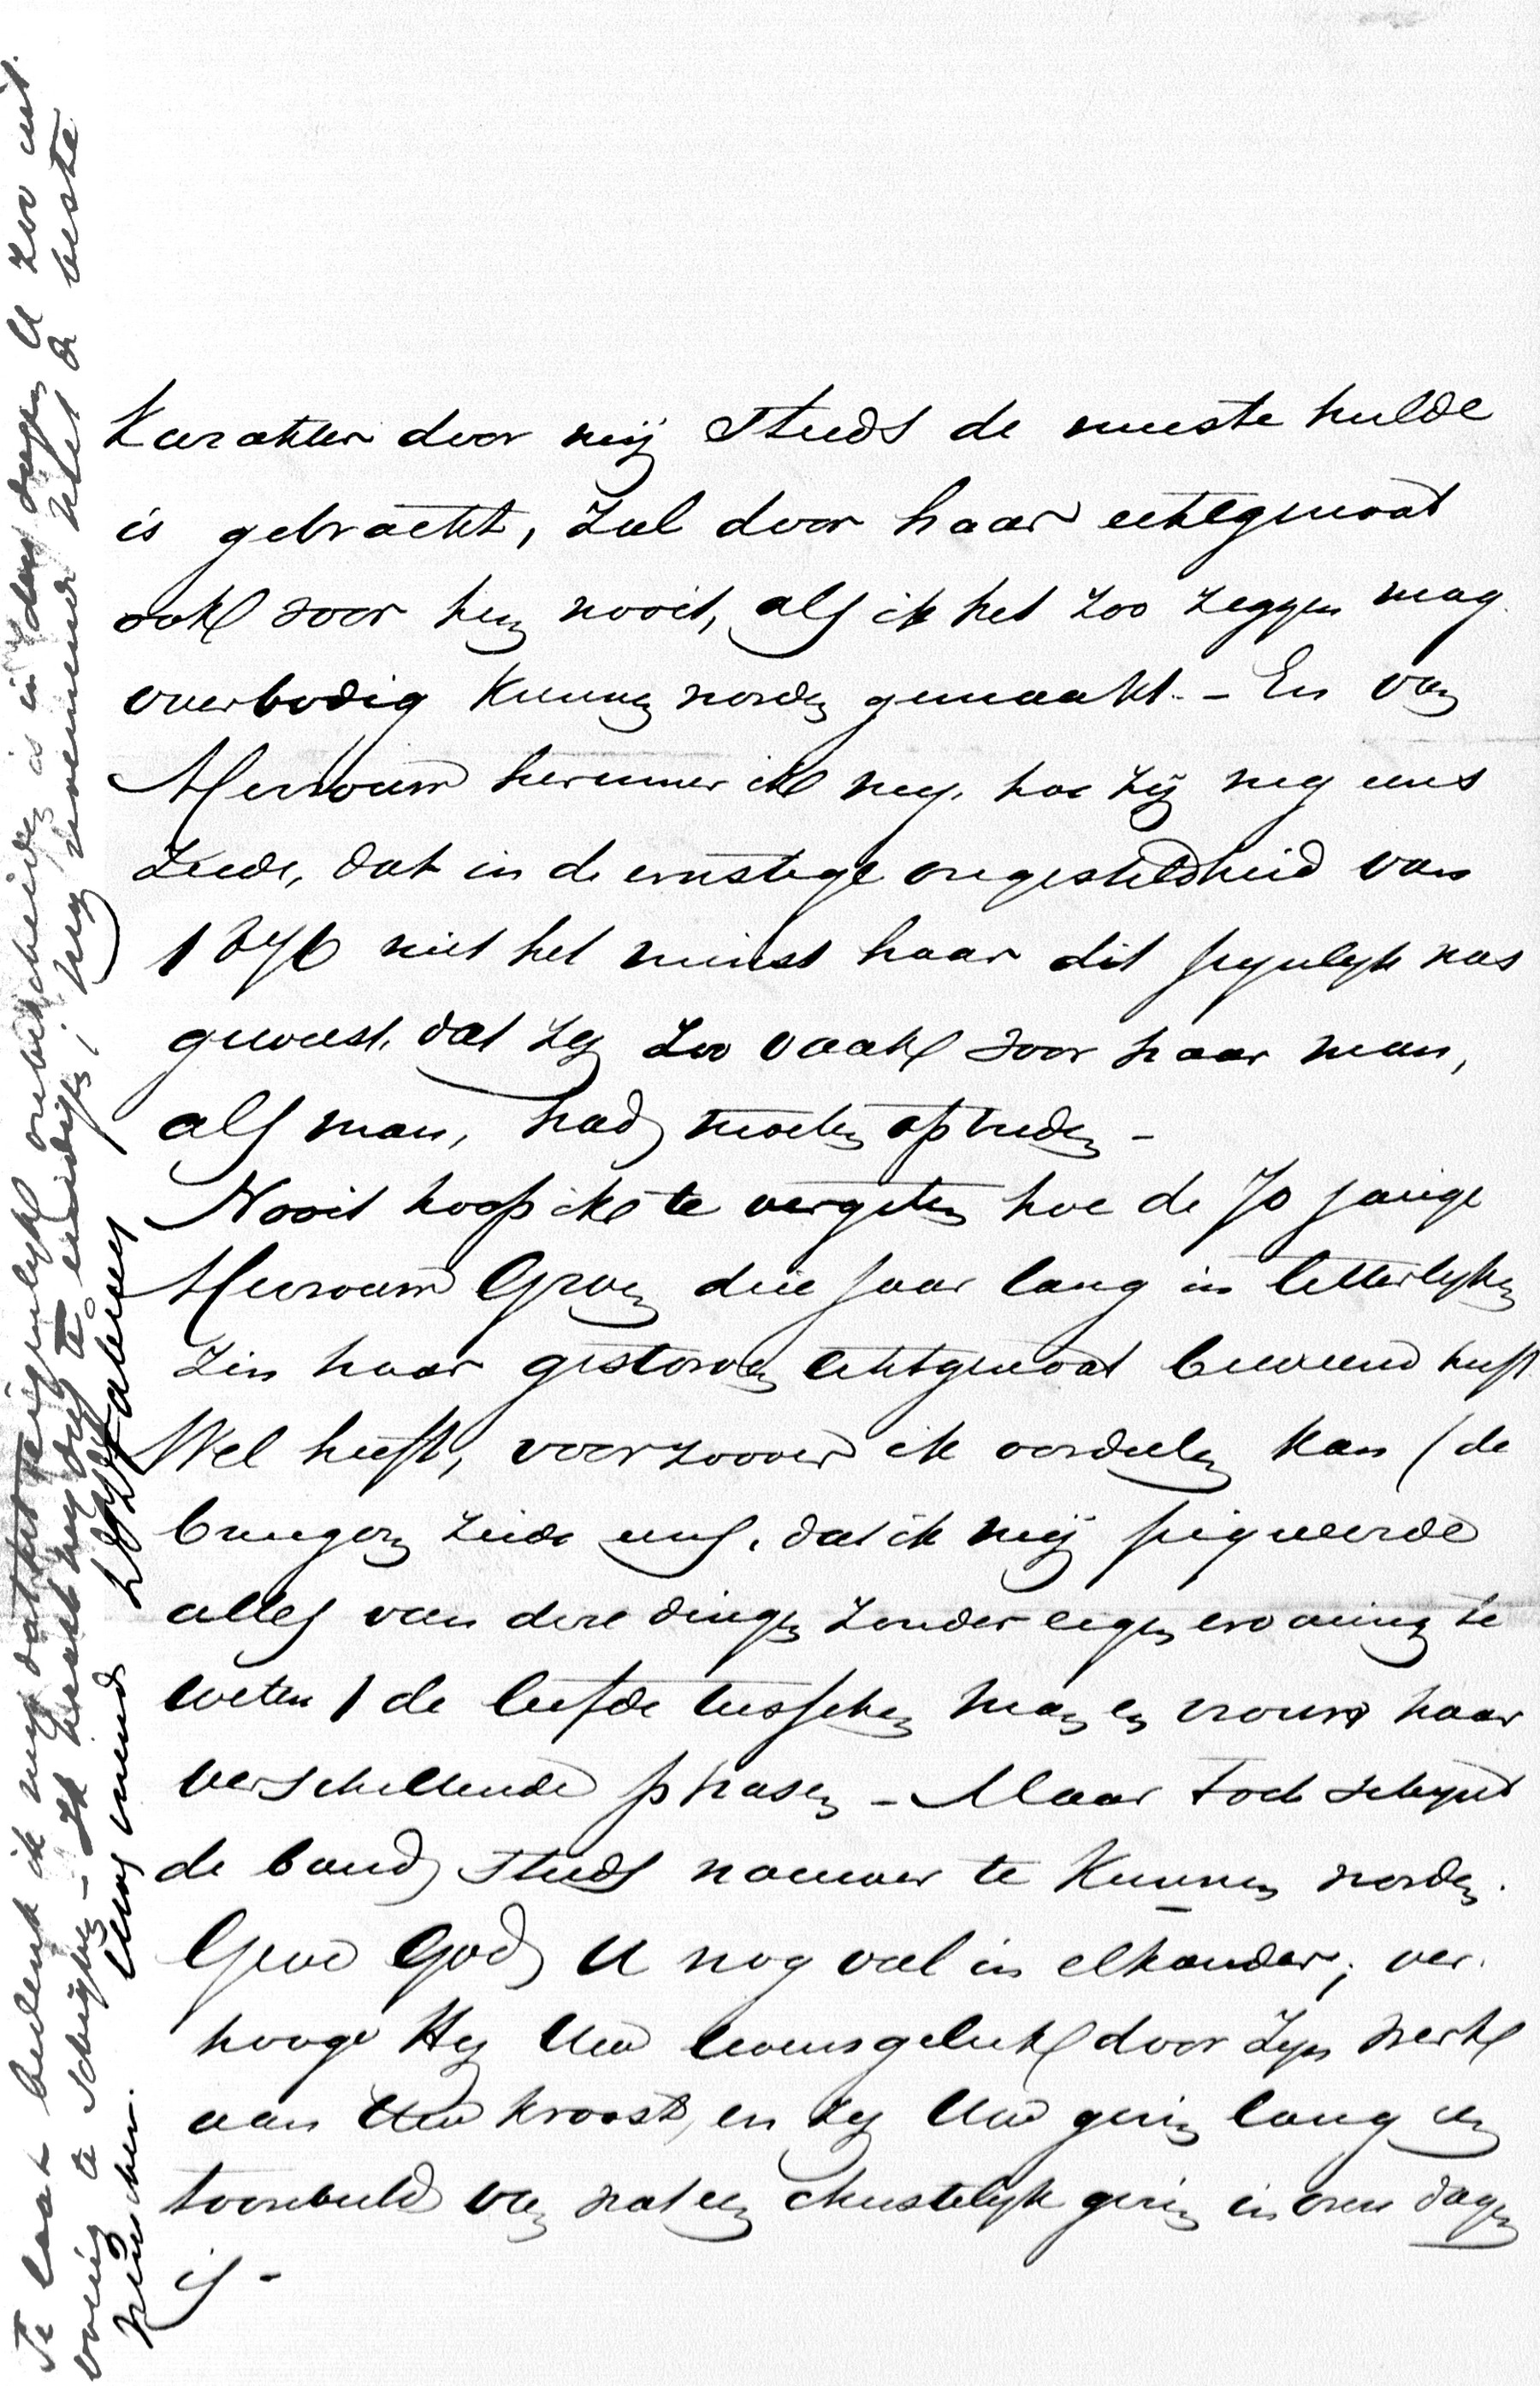 Karakter door mij steeds de meeste hulde
is gebracht, zal door haar echtgenoot
ook voor hen nooit, als ik het zoo zeggen mag
overbodig kunnen worden gemaakt. - En van
Mevrouw herinner ik mij, hoe zij mij eens
zeide, dat in de ernstige ongesteldheid van
1876 niet het minst haar dit pijnlijk was
geweest, dat zij zoo vaak voor haar man,
als man, had moeten optreden -
Nooit hoop ik te vergeten hoe de 70 jarige
Mevrouw Groen drie jaar lang in letterlijken
zin haar gestorven echtgenoot beweend heeft
Wel heeft, voorzoover ik oordeelen kan (de
zeide eens, dat ik mij piqueerde
alles van deze dingen zonder eigen ervaring te
weten) de liefde tusschen man en vrouw haar
verschillende phasen - Maar toch schijnt
de band steeds nauwer te kunnen worden.
Geve God U nog veel in elkander; ver-
hooge Hij Uw levensgeluk door Zijn werk
aan Uw kroost, en zij Uw gezin lang een
toonbeeld van wat een christelijk gezin in onze dagen
is -
Te laat bedenk ik mij dat het eigenlijk onbescheiden is in deze dagen U zoo uit-
voerig te schrijven - Ik haast mij dus te eindigen, mij noemende met de beste
wenschen. Uwe vriend